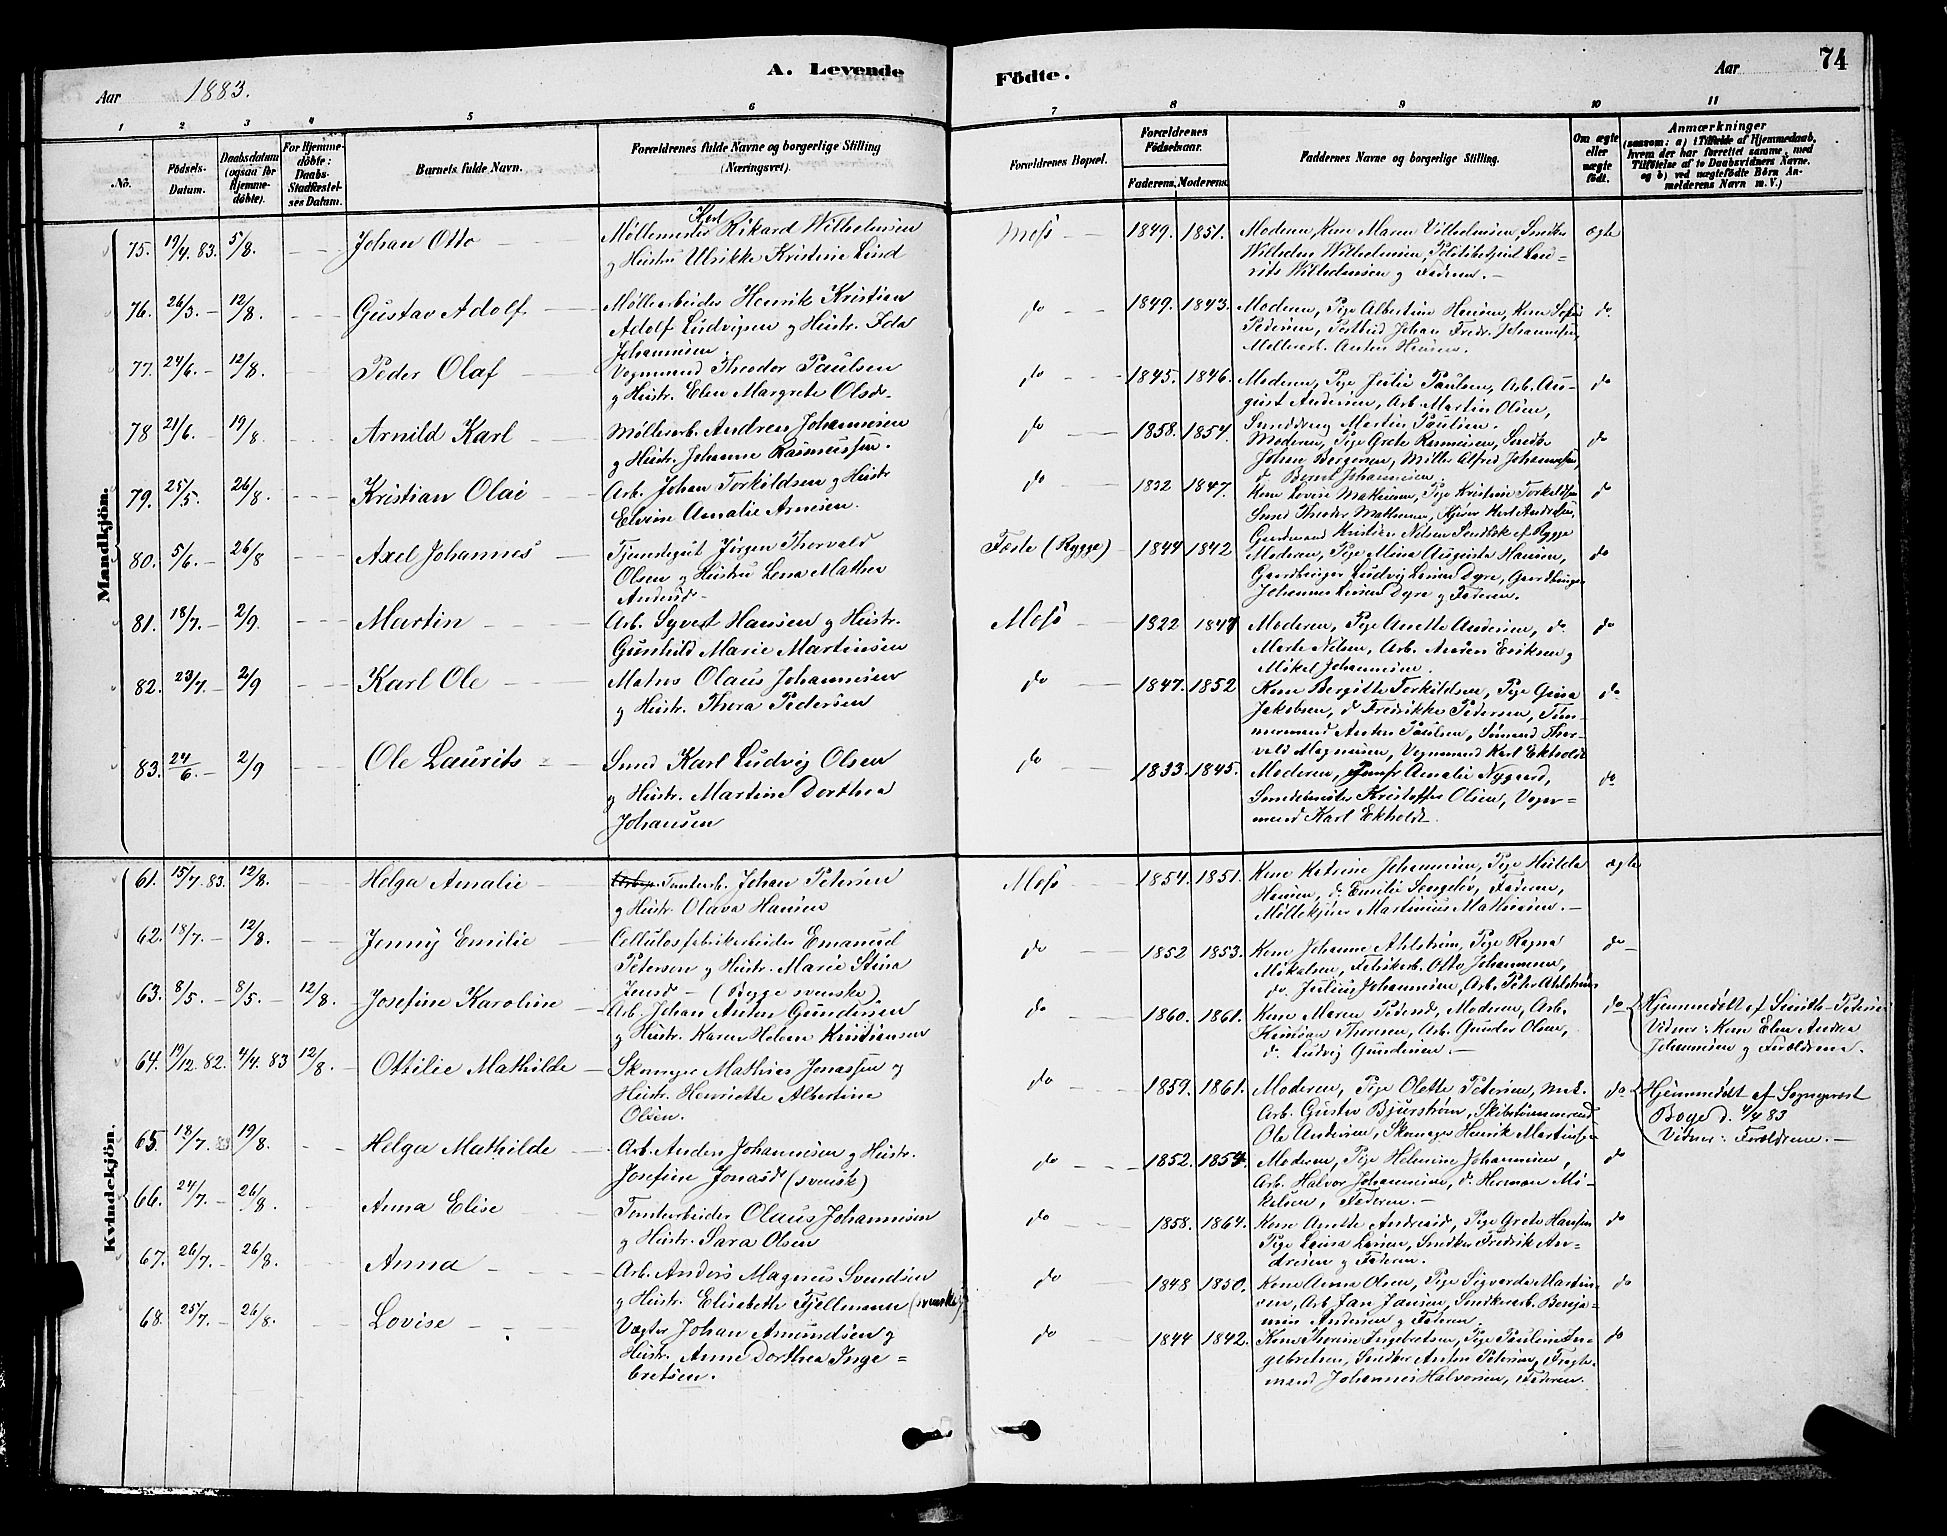 Aar 1883.
A. Levende
Födte.
Aar
74
1 2 3 4 5 6 7 8 9 10 11
No.
Födsels-Datum.
Daabsdatum (ogsaa for Hjemmedöbte).
For Hjemmedöbte: Daabs-Stadfæstelses Datum.
Barnets fulde Navn.
Forældrenes fulde Navne og borgerlige Stilling (Næringsvei).
Forældrenes Bopæl.
Forældrenes Födselsaar.
Faderens. Moderens.
Faddernes Navne og borgerlige Stilling.
Om ægte eller uægte födt.
Anmærkninger
(saasom: a) i Tilfælde af Hjemmedaab, hvem der har forrettet samme, med Tilföielse af to Daabsvidners Navne, og b) ved uægtefödte Börn Anmelderens Navn m. V.)
Mandkjön.
75. 19/4 83. 5/8. Johan Otto
Møllemester Karl Rikard Wilhelmsen
og Hustru Ulrikke Kristine Lind
Moss 1849. 1851.
Moderen, Kone Maren Vilhelmsen, Snedker
Wilhelm Wilhelmsen, Politibetjent Lau-
rits Wilhelmsen og Faderen.
ægte
76. 26/3. 12/8. Gustav Adolf
Møllearbeider Henrik Kristian
Adolf Ludvigsen og Hustr. Ida
Johannesen
do 1849. 1843.
Moderen, Pige Albertine Hansen, Kone Sofie
Pedersen, Postbud Johan Fredr. Johannesen,
Møllearb. Anton Hansen.
do
77. 24/6. 12/8. Peder Olaf
Vognmand Theodor Paulsen
og Hustr. Elen Margrete Olsdr.
do 1845. 1846.
Moderen, Pige Julie Paulsen, Arb. Au-
gust Andersen, Arb. Martin Olsen,
Smeddreng Martin Paulsen.
do
78 21/6. 19/8. Arnild Karl
Møllerarb. Andren Johannesen
og Hustr. Johanne Rasmussen.
do 1858. 1854.
Moderen, Pige Grete Rasmussen, Snedker
Johan Bergersen, Møller Alfred Johannesen,
d. Bernt Johannesen.
do
79. 25/5. 26/8. Kristian Olai
Arb. Johan Torkildsen og Hustr
Elvine Amalie Arnesen.
do 1832 1847.
Kone Lovise Mathisen, Pige Kristine Torkildsen
Smed Theodor Mathisen, Kjører Karl Andersen,
Gaardmand Kristian Nilsen Sendbøk af Rygge
do
80. 5/6. 26/8 Axel Johannes
Tjenestegut Jørgen Thorvald
Olsen og Hustru Lena Mathea
Andersdr.
Feste (Rygge) 1844 1842
Moderen, Pige Mina Augusta Hansen,
Gaardbruger Ludvig Larsen Dyre, Gaardbruger
Johannes Larsen Dyre og Faderen.
do
81. 18/7. 2/9. Martin
Arb. Syvert Hansen og Hustr.
Gunhild Marie Martinsen
Moss 1822 1847
Moderen, Pige Anette Andersen, do.
Marte Nilsen, Arb. Andren Eriksen og
Mikal Johannesen.
do
82. 23/7. 2/9 Karl Ole
Matros Olaus Johannesen
og Hustr. Thora Pedersen
do 1847. 1852
Kone Bergitte Torkildsen, Pige Gina
Jakobsen, d. Fredrikke Pedersen, Tøm-
mermand Anton Paulsen, Sømand Thor-
vald Magnusen, Vognmand Karl Ekholdt
do
83. 24/6. 2/9 Ole Laurits
Smed Karl Ludvig Olsen
og Hustr. Martine Dorthea
Johansen
do 1833. 1845.
Moderen, Jomfr Amalie Nygaard,
Smedemester Kristoffer Olsen, Vogn-
mand Karl Ekholdt.
do
Kvindekjön.
61. 15/7 83. 12/8. Helga Amalie
Tomtearb. Johan Petersen
og Hustr. Olava Hansen
Moss 1854. 1851.
Kone Katrine Johannesen, Pige Hulda
Hansen, d. Emilie Sengeløv, Faderen,
Møllekjører Martinius Mathiesen.
ægte
62. 18/7. 12/8. Jenny Emilie
Cellulosfabrikarbeider Emanuel
Petersen og Hustr. Marie Stina
Jensd (Begge svenske)
do 1852 1853.
Kone Johanne Ahlstrøm, Pige Ragna
Mikalsen, Fabrikarb. Otto Johannesen,
do. Julius Johannesen, Arb. Peter Ahlstrøm
do
63. 8/5. 8/5. 12/8. Josefine Karoline
Arb. Johan Anton Gundersen
og Hustr. Karen Helene Kristiansen
do 1860. 1861.
Kone Maren Pedersd, Moderen, Arb.
Thoresen, Arb. Gunder Olsen,
d. Ludvig Gundersen.
do
Hjemmedøbt af Petersen
Vidner: Kone Elen Andrea
Johannesen og Forældrene.
64. 19/12. 82. 4/4. 83 12/8. Ottilie Mathilde
Skomager Mathias Jonassen og
Hustr. Henriette Albertine
Olsen.
do 1859. 1861.
Moderen, Pige Olette Petersen, Mek.
Arb. Gustav Bjurstrøm, Skibstømmermand
Ole Andersen, Skomager Henrik Martinsen
do
Hjemmedøbt af Sogneprest
Boye d. 4/4 83
Vidner: Forældrene.
65. 18/7. 83 19/8. Helga Mathilde
Arb. Anders Johannesen og Hustr.
Josefine Jonasd (svensk)
do 1852. 1854.
Moderen, Pige Helmine Johannesen,
Arb. Halvor Johannesen, d. Herman Mi-
kelsen, Faderen.
do
66. 24/7. 26/8. Anna Elise
Tomtearbeider Olaus Johannesen
og Hustr. Sara Olsen
do 1858. 1864.
Kone Anette Andersd, Pige Grete Hansen
Pige Laura Larsen, Snedker Fredrik An-
dresen og Faderen.
do
67. 26/7. 26/8. Anna
Arb. Anders Magnus Svendsen
og Hustr. Elisabeth Fjellmann (svenske)
do 1848 1850.
Kone Anna Olsen, Pige Sigvarda Martin-
sen, Arb. Jan Jansen, Snedkerarb. Benja-
min Andersen og Faderen.
do
68. 25/7. 26/8. Lovise
Vægter Johan Amundsen og
Hustr. Anne Dorthea Inge-
bretsen.
do 1844 1842.
Kone Thorine Ingebretsen, Pige Pauline In-
gebretsen, Snedker Anton Petersen, Fragte-
mand Johannes Halvorsen, Faderen.
do